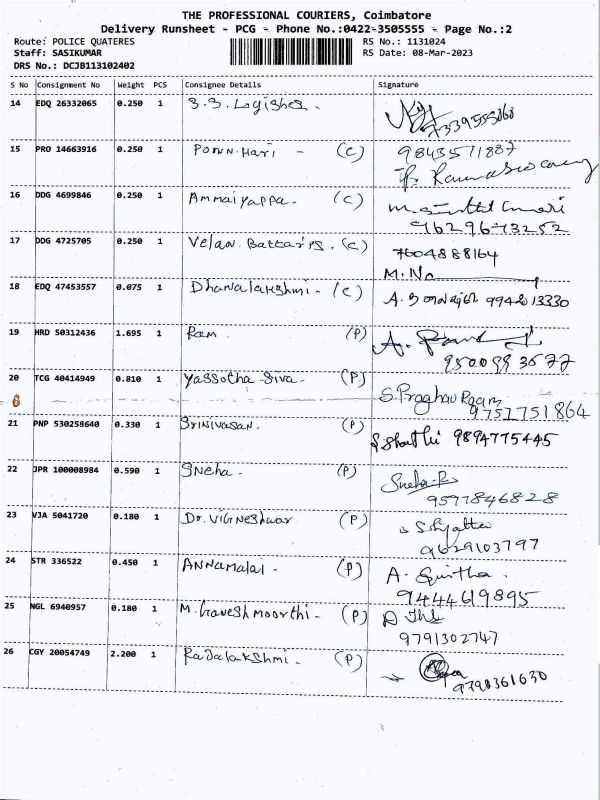 THE PROFESSIONAL COURIERS, Coimbatore
Delivery Runsheet - PCG - Phone No.:0422-3505555 - Page No.:2
Route: POLICE QUATERES RS No.: 1131024
Staff: SASIKUMAR RS Date: 08-Mar-2023
DRS No.: DCJB113102402
S No Consignment No Weight PCS Consignee Details Signature
14 EDQ 26332065 0.250 1 S.S. Logishes.
15 PRO 14663916 0.250 1 PONN.Hari - (C) 9843571887
16 DDG 4699846 0.250 1 Ammaiyappa. (C)
9629673252
17 DDG 4725705 0.250 1 Velan Battaris. (C) 7604888164
M.No
18 EDQ 47453557 0.075 1 Dhanalakshmi - (C) 13330
19 HRD 50312436 1.695 1 Ram (P) A.
9500993677
20 TCG 40414949 0.810 1 Yassotha Siva - (P.) S. Praghav Raam
6 9751751864
21 PNP 530258640 0.330 1 Srinivasan. (P) 9894775445
22 JPR 100008984 0.590 1 Sneha - (P) Sneha.R
9597846828
23 VJA 5041720 0.180 1 Dr. Vigneshwar (P)
9629103797
24 STR 336522 0.450 1 Annamalai - (P) A. Sunitha.
9444619895
25 NGL 6940957 0.180 1 M. Ganesh moorthi - (P)
9791302747
26 CGY 20054749 2.200 1 Radalakshmi. (P)
9790361630